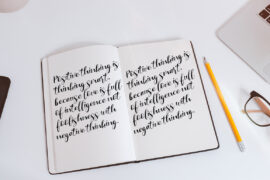 Positive thinking is
thinking smart,
because love is full
of intelligence not
foolishness with
negative thinking.
Positive thinking is
thinking smart,
because love is full
of intelligence not
foolishness with
negative thinking.